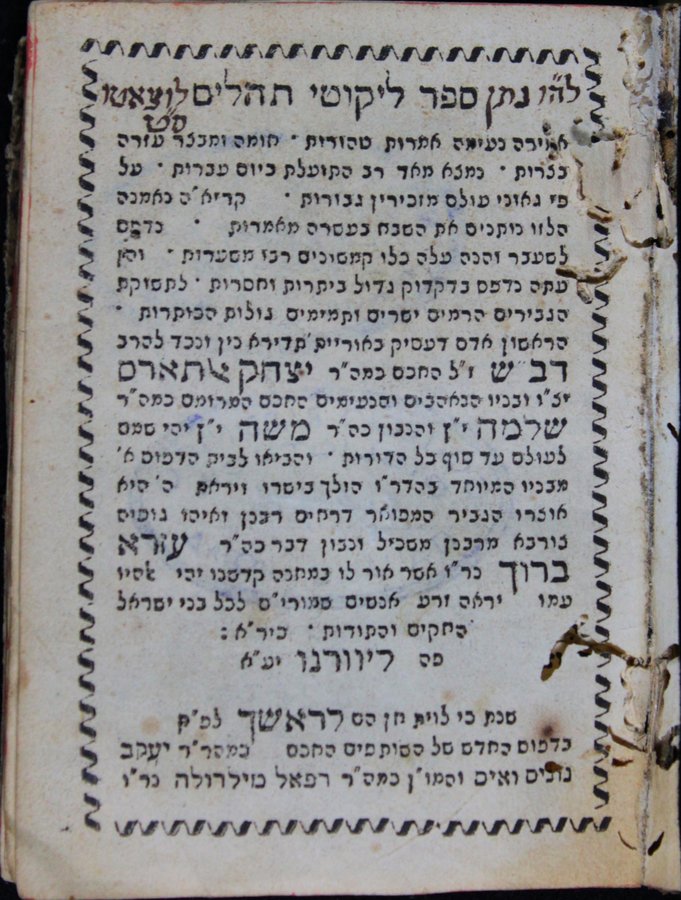 לה"ו נתן ספר ליקוטי תהלים לוצאטו
ס"ט
אמירה נעימה אמרות טהורות · חומה ומבצר עזרה
בצרות · נמצא מאד רב התועלת ביום עברות · על
פי גאוני עולם מזכירין גבורות · קריא"ה נאמנה
הלזו נותנים את השבח בעשרה מאמרות · נדפס
לשעבר והנה עלה כלו קמשונים רבו משערות · והן
עתה נדפס בדקדוק גדול ביתרות וחסרות · לתשוקת
הגבירים הרמים ישרים ותמימים גולות הכותרות ·
הראשון אדם דעסיק באורייתא תדירא נין ונכד להרב
דב"ש ז"ל החכם כמה"ר יצחק אתארס
יצ"ו ובניו הנאהבים והנעימים החכם המרומם כמה"ר
שלמה י"ן והנבון כה"ר משה י"ן יהי שמם
לעולם עד סוף כל הדורות · והביאו לבית הדפוס א'
מבניו המיוחד בהדר"ו הולך בישרו ויראת ה' היא
אוצרו הגביר המפואר דרחים רבנן ואיהו גופיה
צורבא מרבנן משכיל ונבון דבר כה"ר עזרא
ברוך נר"ו אשר אור לו במחנה קדשנו יהי אלהיו
עמו יראה זרע אנשים שמורי"ם לכל בני ישראל
החקים והתודות · כיר"א :
פה ליוורנו יע"א
שנת כי לוית חן הם לראשך לפ"ק
בדפוס החדש של השותפים החכם כמהר"ר יעקב
נונים ואיס והמו"ן כמה"ר רפאל מילדולה נר"ו